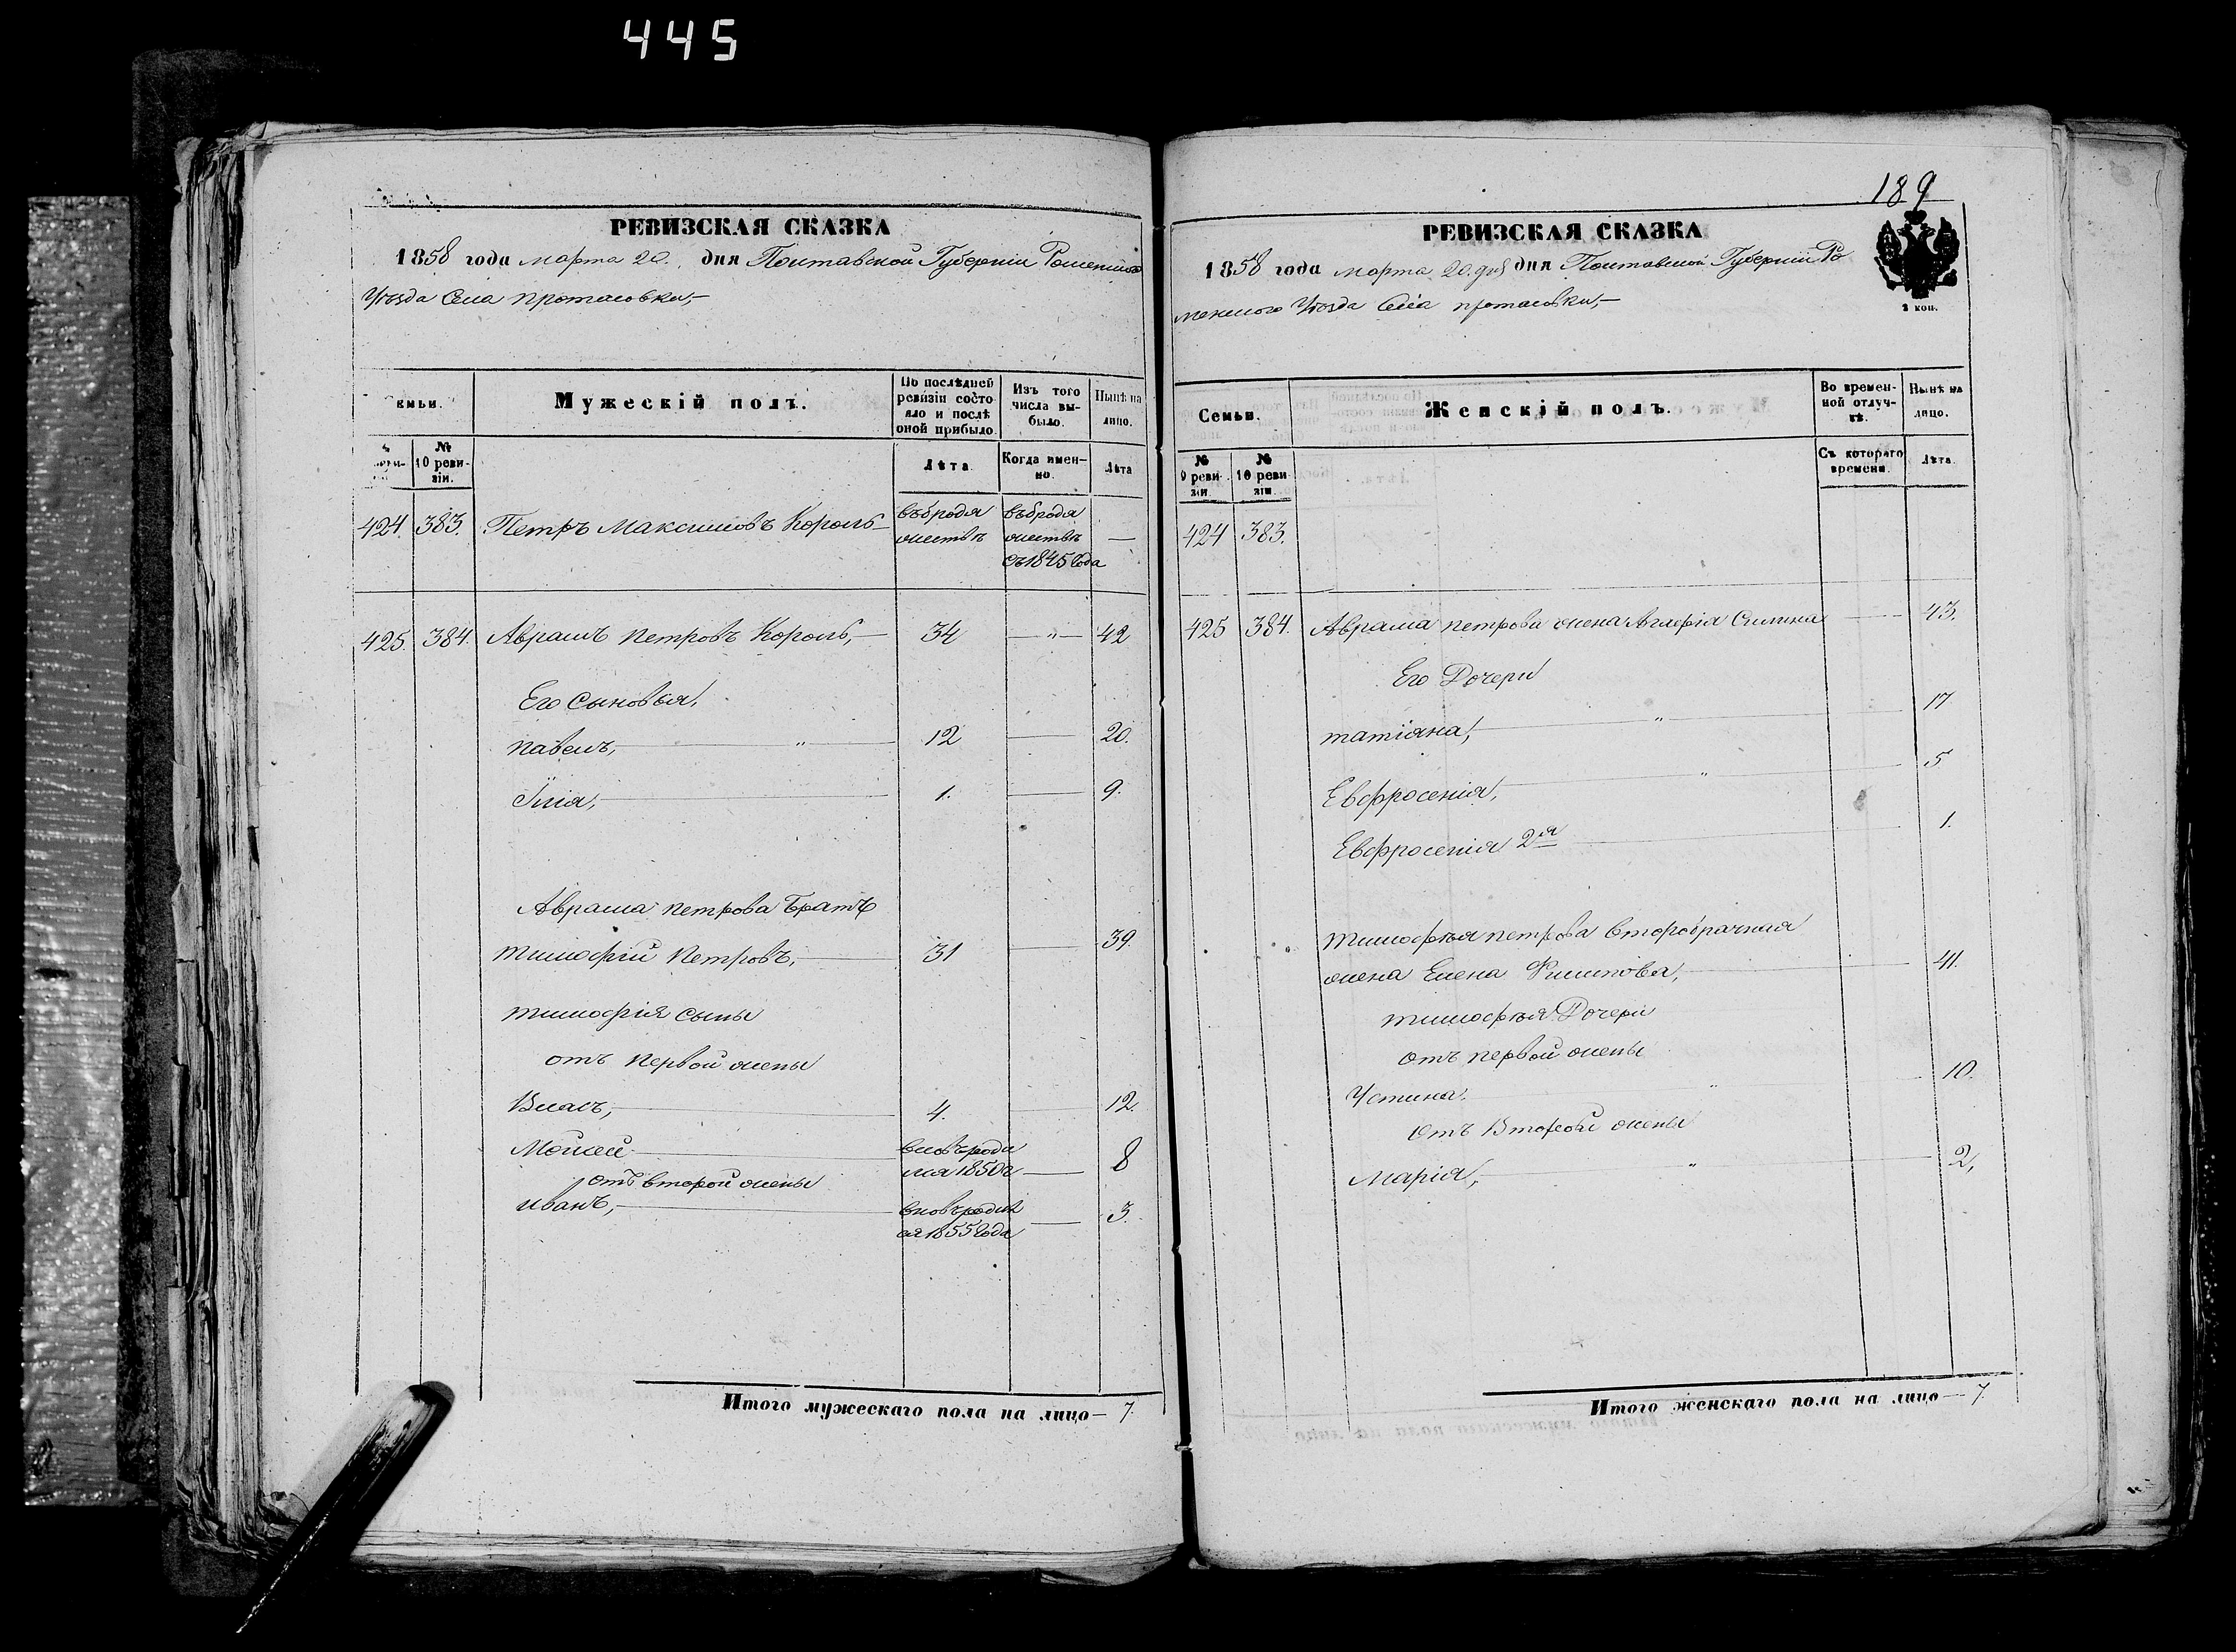 445
РЕВИЗСКАЯ СКАЗКА
1858 года марта 20. дня Полтавской Губерніи Роменского
Уѣзда Села протасовки,
емьи.
Мужескій полъ.
По послѣдней ревизіи состояло и послѣ оной прибыло
Изъ того числа выбыло.
Нынѣ на лицо.
№
10 ревизіи.
Лѣта
Когда именно.
Лѣта
424. 383. Петръ Максимовъ Король въбродя жествѣ въбродя жествѣ съ 1845 года —
425. 384. Аврамъ петровъ Король, 34 — " — 42
Его Сыновья,
павелъ, " 12 20.
Илія, 1. 9.
Аврама петрова Братъ
тимофій петровъ, 31 39.
тимофія сыны
отъ первой жены
Власъ, 4. 12.
Мойсей вновьроди лся 1850 г 8
отъ второй жены
иванъ, вновьродил ся 1855 года 3.
Итого мужескаго пола на лицо — 7.
189
РЕВИЗСКАЯ СКАЗКА
1858 года марта 20. дня дня Полтавской Губерніи Ро
менского Уѣзда Села протасовки,
2 коп.
Семьи.
Женскій полъ.
Во временной отлучкѣ.
Нынѣ на лицо.
№ 9 ревизіи
№ 10 ревизіи.
Съ котораго времени.
Лѣта.
424 383.
425 384. Аврама петрова жена Гликерія 43.
Его Дочери
татіяна, " 17
Евфросенія, " 5
Евфросенія 2я 1.
тимофѣя петрова второбрачная
жена Елена Филипова, 41.
тимофѣя Дочери
отъ первой жены
Устина. " 10.
отъ Второй жены
Марія, " 2,
Итого женскаго пола на лицо — 7